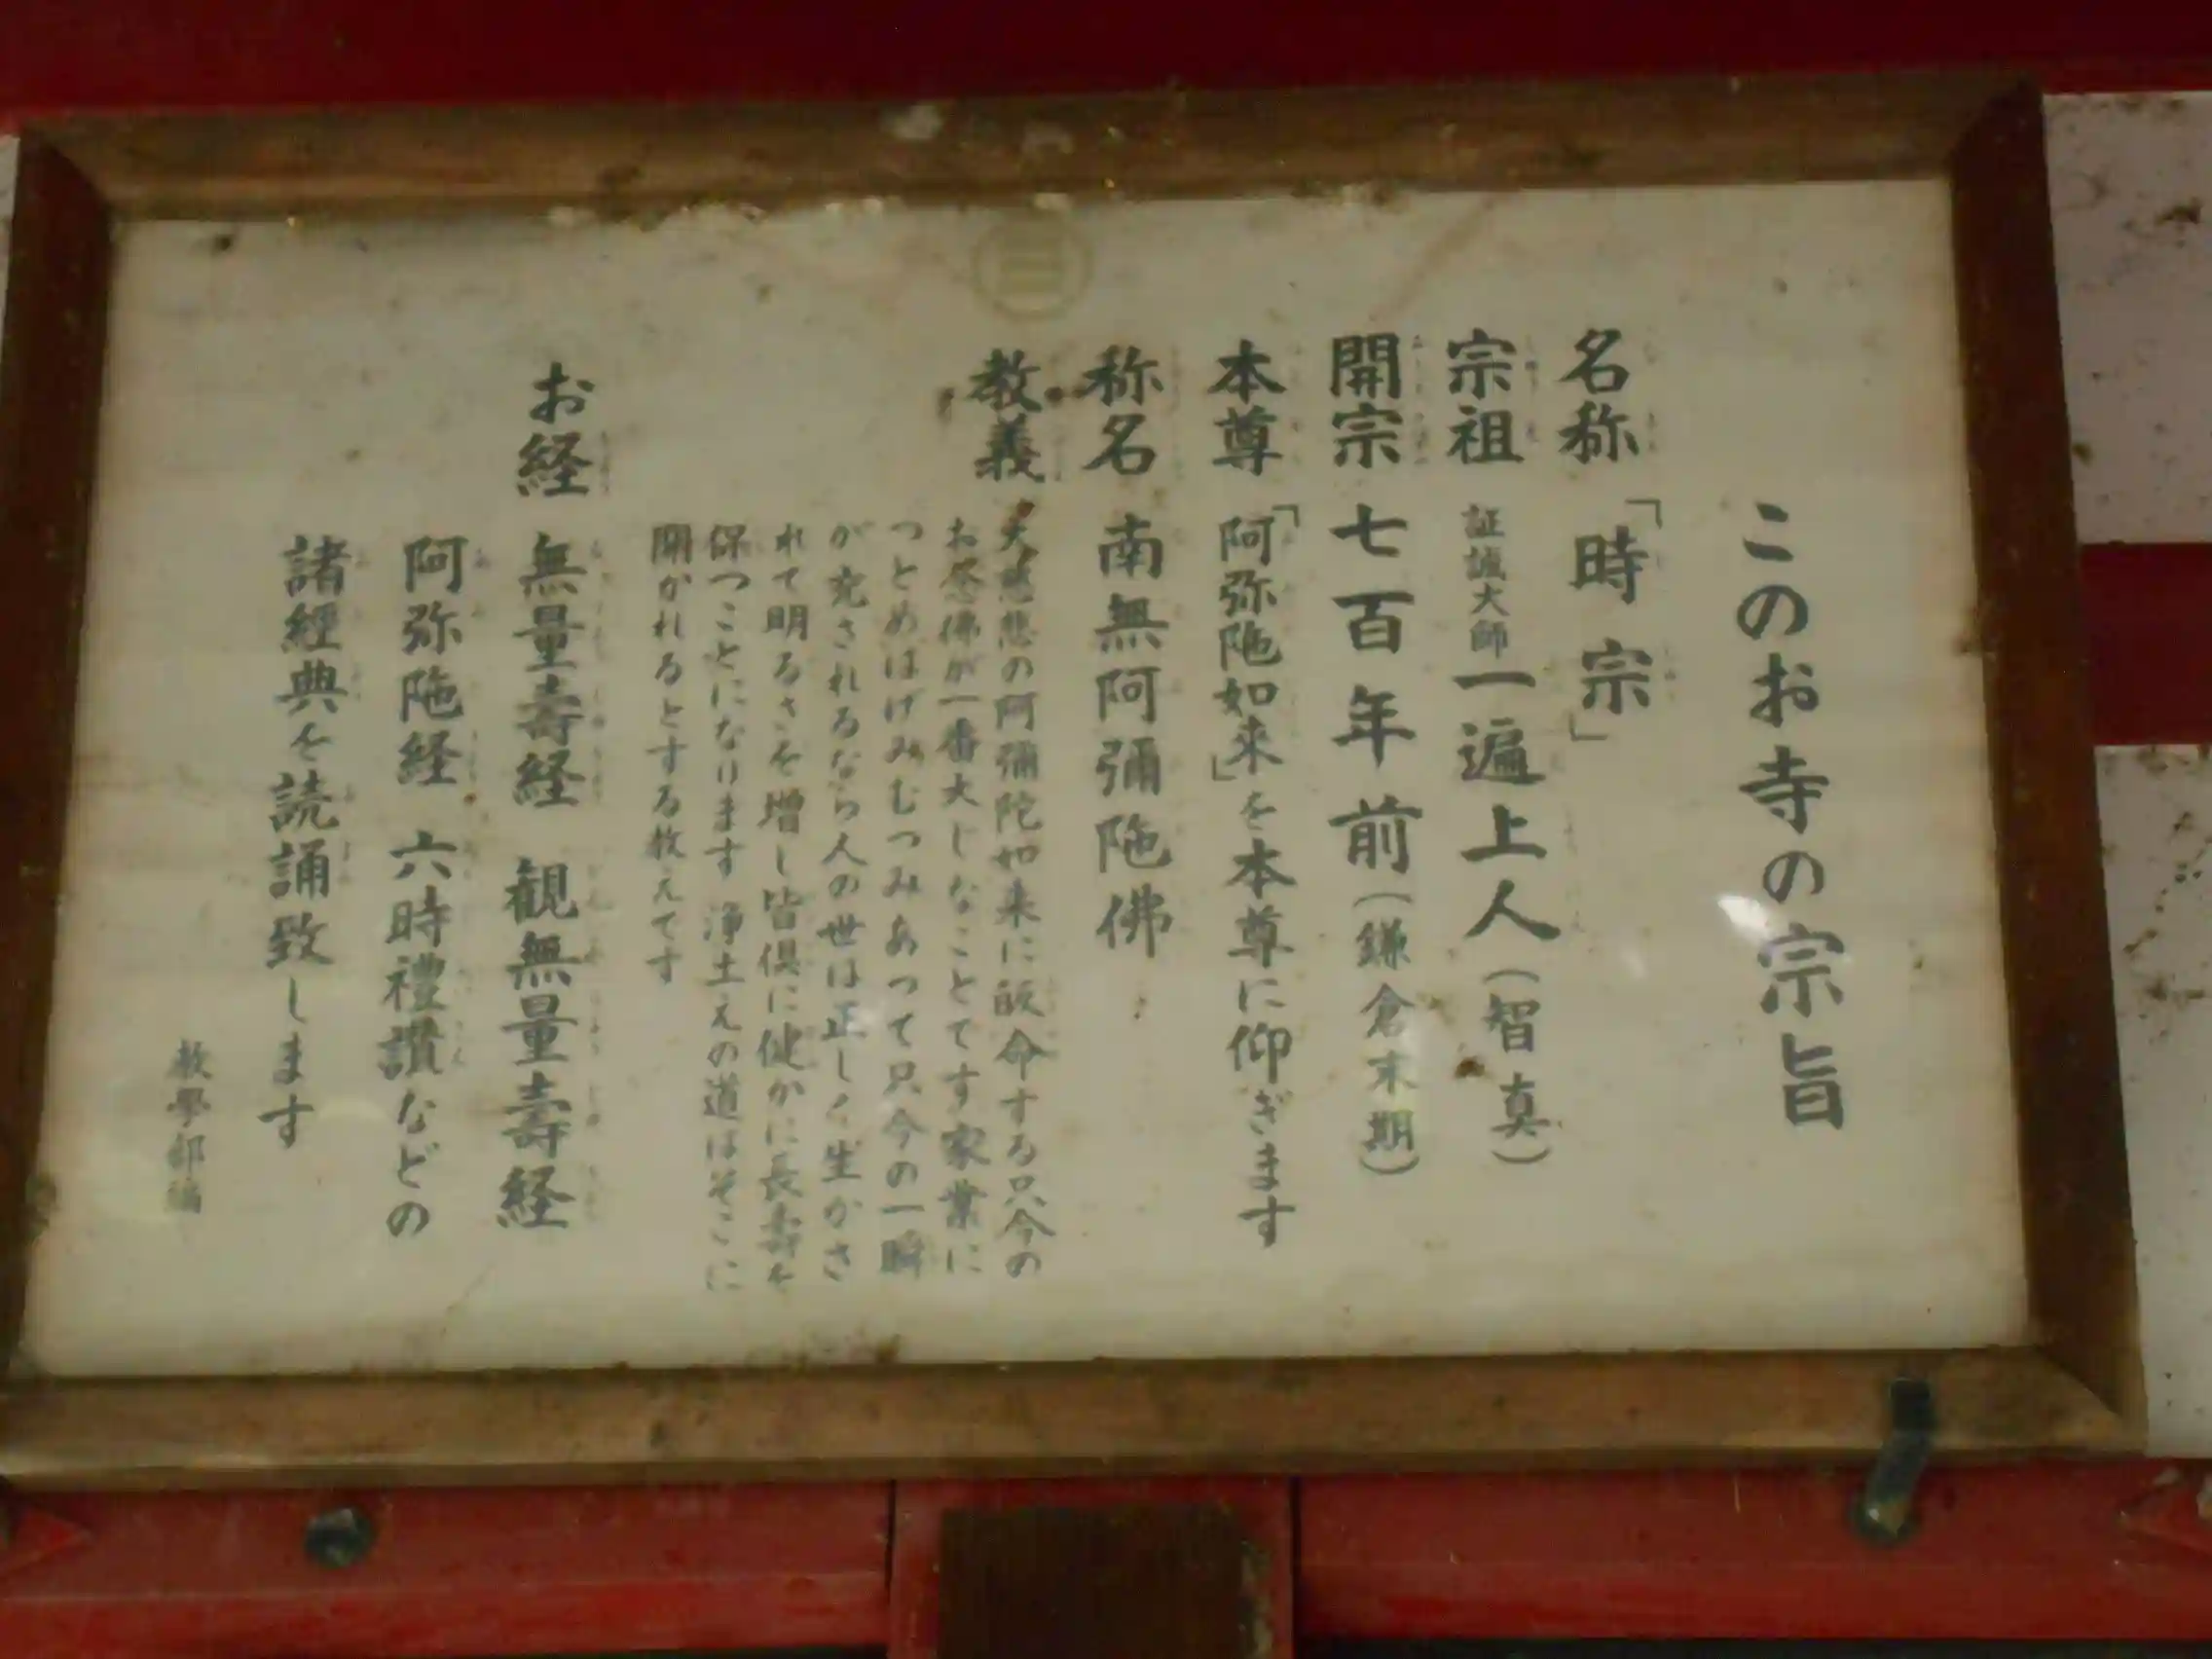 このお寺の宗旨
名称 「時宗」
宗祖 証誠大師 一遍上人（智真）
開宗 七百年前（鎌倉末期）
本尊 「阿弥陁如来」を本尊に仰ぎます
称名 南無阿彌陁佛
教義 大慈悲の阿彌陀如来に皈命する只今の
お念佛が一番大じなことです家業に
つとめはげみむつみあって只今の一瞬
が充されるなら人の世は正しく生かさ
れて明るさを増し皆倶に健かに長寿を
保つことになります 浄土えの道はそこに
開かれるとする教えです
お経 無量壽経 観無量壽経
阿弥陁経 六時禮讃などの
諸經典を読誦致します
教學部編